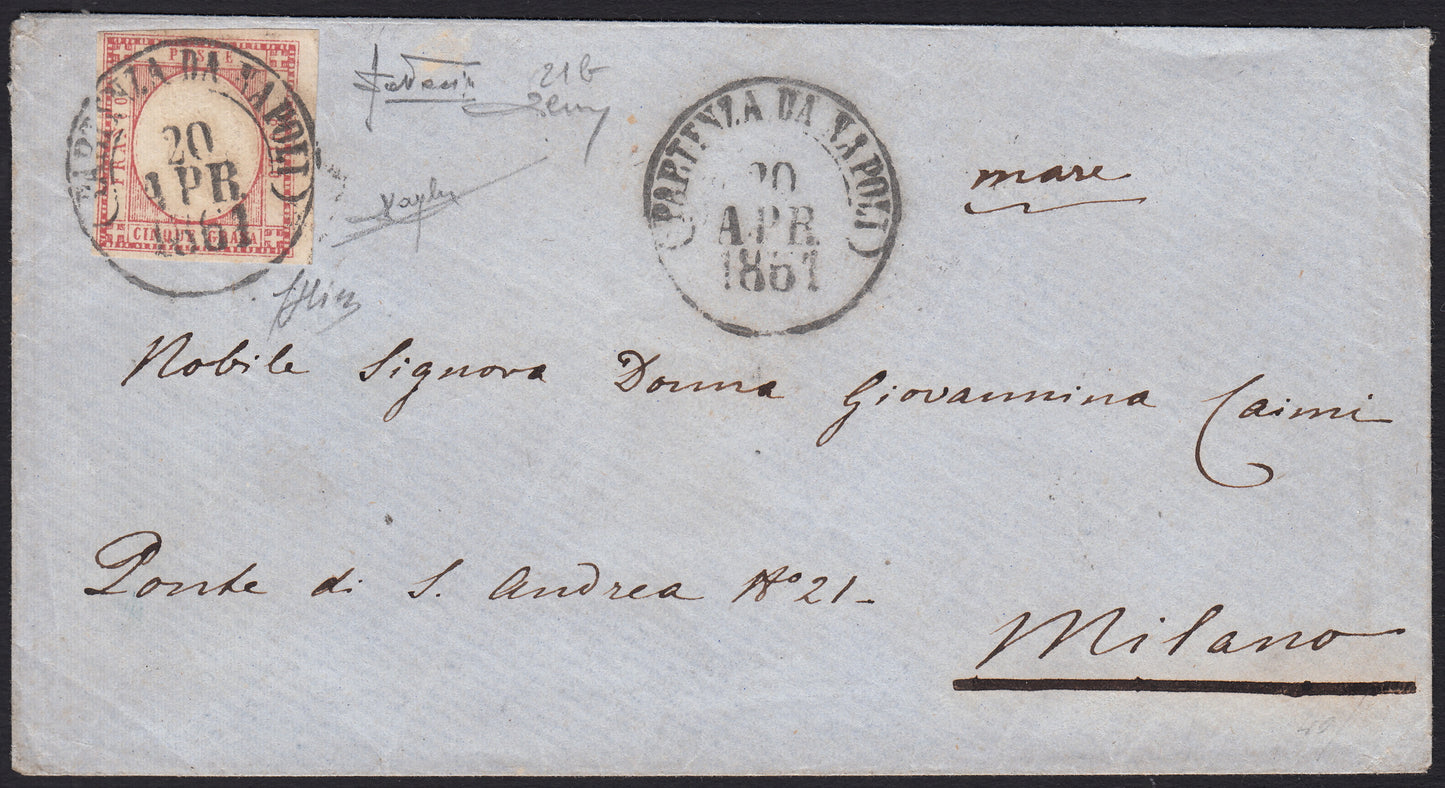 POSTE
FRANCO
CINQUE GRANA
(PARTENZA DA NAPOLI)
20
APR
1861
21b
(PARTENZA DA NAPOLI)
20
APR
1861
mare
Nobile Signora Donna Giovannina Caimi
Ponte di S. Andrea No 21-
Milano